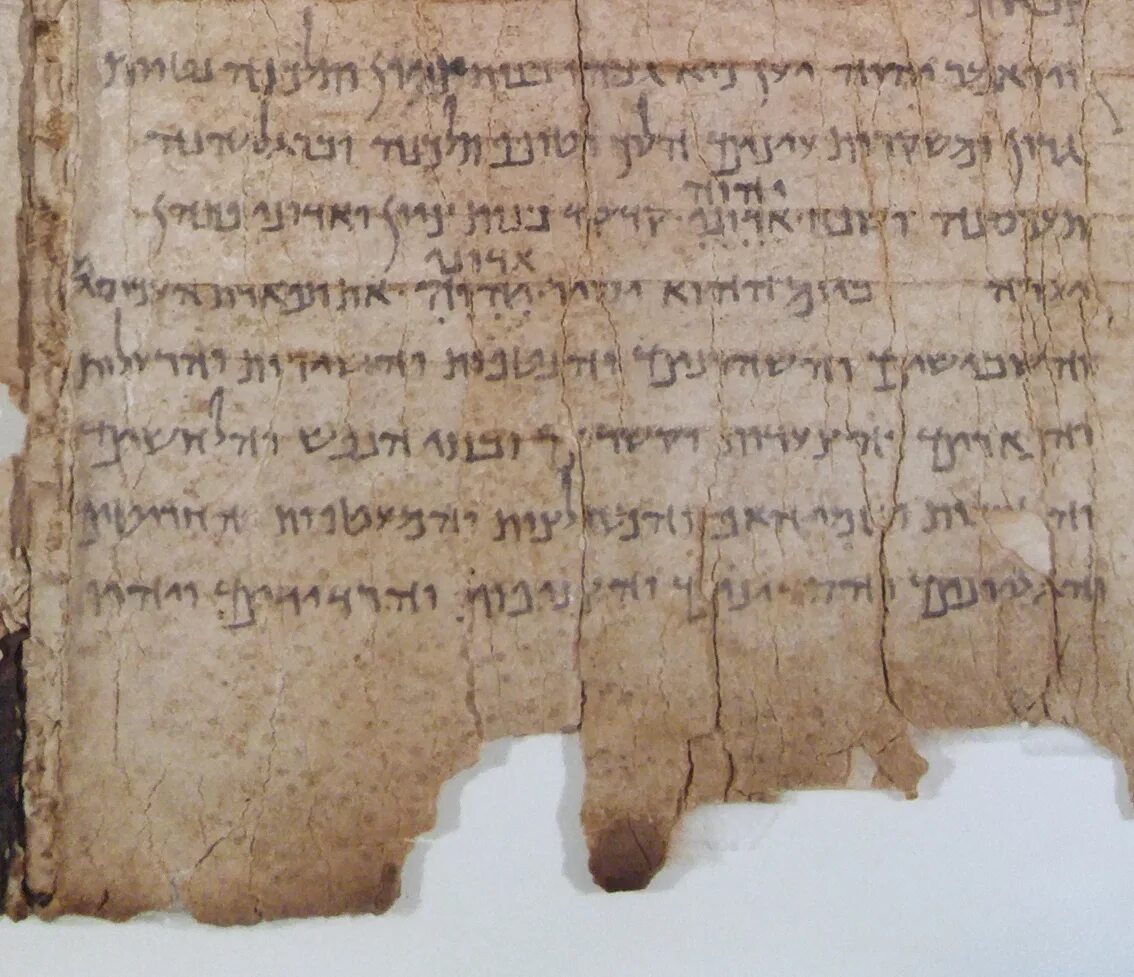 ויואמר יהוה יען כיא גבהו בנות ציון ותלכנה נטוות
גרון ומשקרות עינים הלוך וטופף תלכנה וברגליהנה
יהוה
תעכסנה ושפח אדוני קדקד בנות ציון ואדוני פתהן
אדוני
יערה ביום ההוא יסיר יהוה את תפארת העכיסים
והשבישים והשהרנים והנטפות והשירות והרעלות
והפארים והצעדות והקשרים ובתי הנפש והלחשים
והטבעות ונזמי האף והמחלצות והמעטפות והחריטים
והגליונים והסדינים והצניפות והרדידים ויהיו